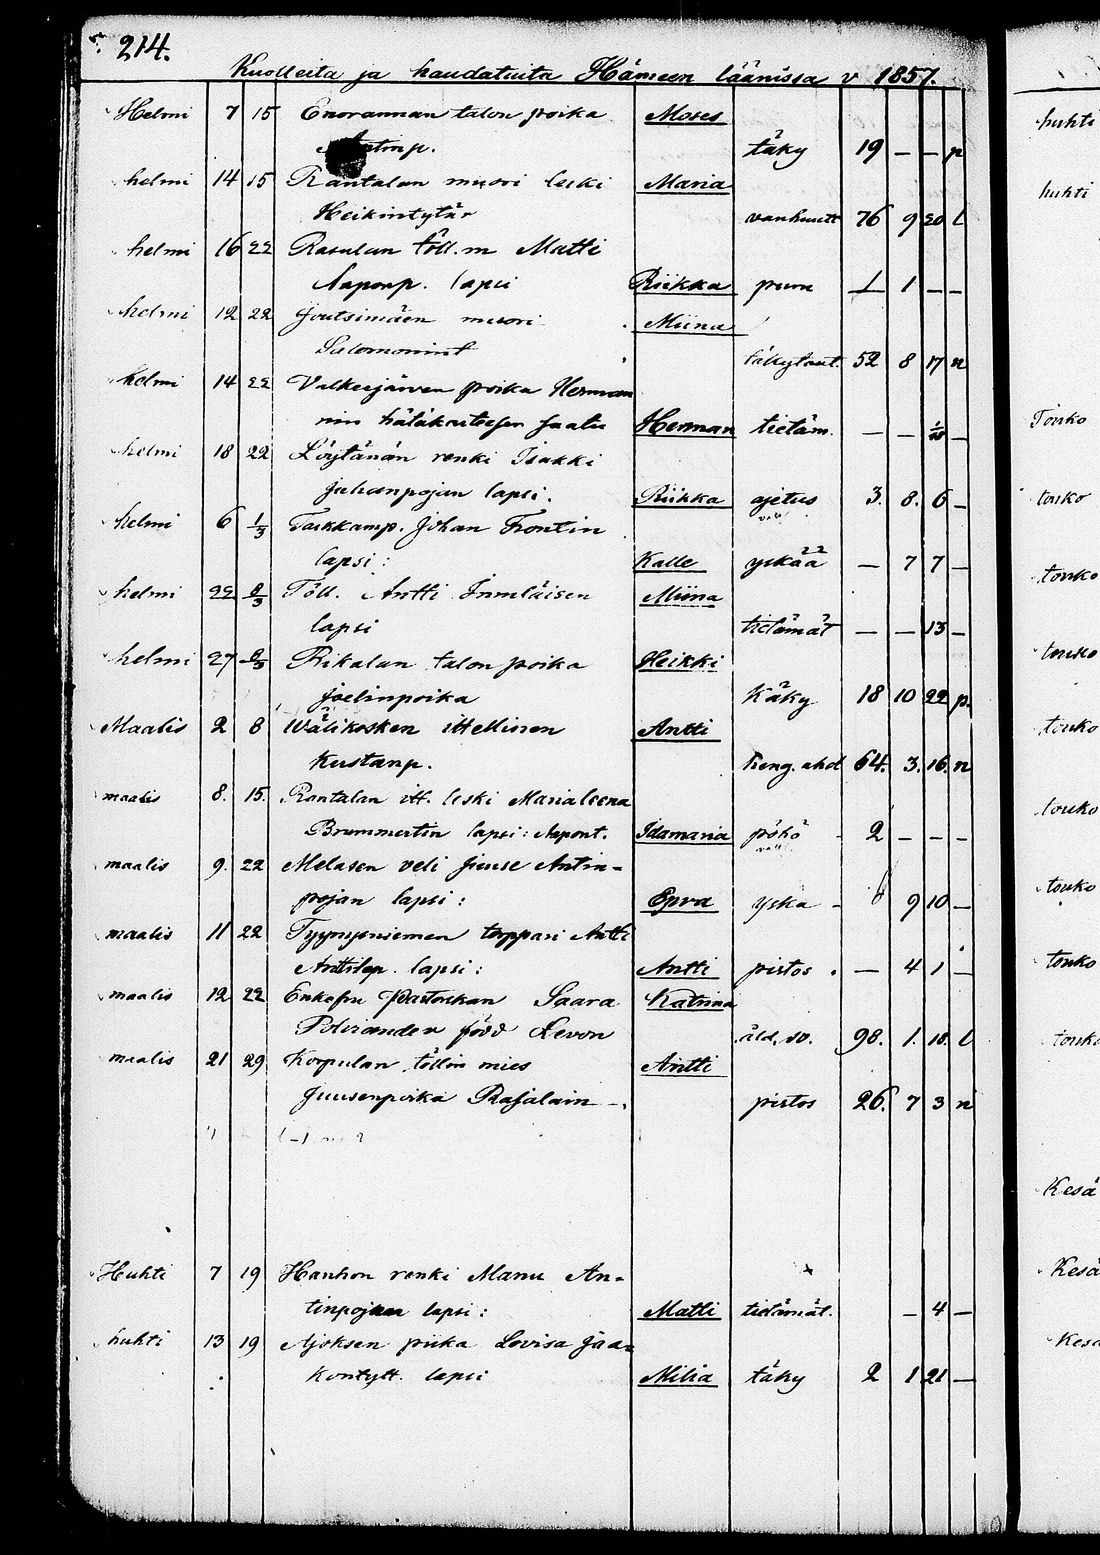 214.
Kuolleita ja haudatuita Hämeen läänissa v 1857.
Helmi 7 15 Enorannan talon poika Moses
täky 19 — — p
helmi 14 15 Rantalan muori leski Maria
Heikintytär vanhuutt 76 9 20 l
helmi 16 22 Rasulan töll.m Matti
Aaponp. lapsi Riikka 1 1 — —
helmi 12 22 Joutsimäen muori Miina
Salomonint 52 8 17 n
helmi 14 22 Valkeejärven poika Herman
nin Herman tietäm. — — —
helmi 18 22 Löytänän renki Isakki
Juhanpojan lapsi. Riikka ajetus 3. 8. 6 —
helmi 6 1/3 Johan Frontin
lapsi: Kalle yskää — 7 7 —
helmi 22 8/3 Töll. Antti Immläisen Miina
lapsi tietämät — — 13 —
helmi 27 8/3 Rikalan talon poika Heikki
joelinpoika 18 10 22 p.
Maalis 2 8 Wälikosken ittellinen Antti
Kustanp. heng. ahd 64. 3. 16. n
maalis 8. 15. Rantalan itt. leski Marialeena
Brummertin lapsi: Aapont. Idamaria pöhö 2 — — —
maalis 9. 22 Melasen veli Juuse Antin-
pojan lapsi: yskä 9 10 —
maalis 11 22 Tyynysniemen torppari Antti
Anttilap. lapsi: Antti pistos. — 4 1 —
maalis 12 22 Enkefru Pastorskan Saara Katrina
född Levon 98. 1. 18. l
maalis 21 29 Korpulan töllin mies Antti
Juusenpoika Rajalain pistos 26. 7 3 n
Huhti 7 19 Hanhon renki Manu An-
tinpojan lapsi: Matti tietämät. — 4 —
huhti 13 19 Ajoksen piika Lovisa Jaa-
kontytt. lapsi Milia täky 2 1 21 —
huhti
huhti
Touko
touko
touko
touko
touko
touko
touko
touko
touko
Kesä
Kesä
Kesä